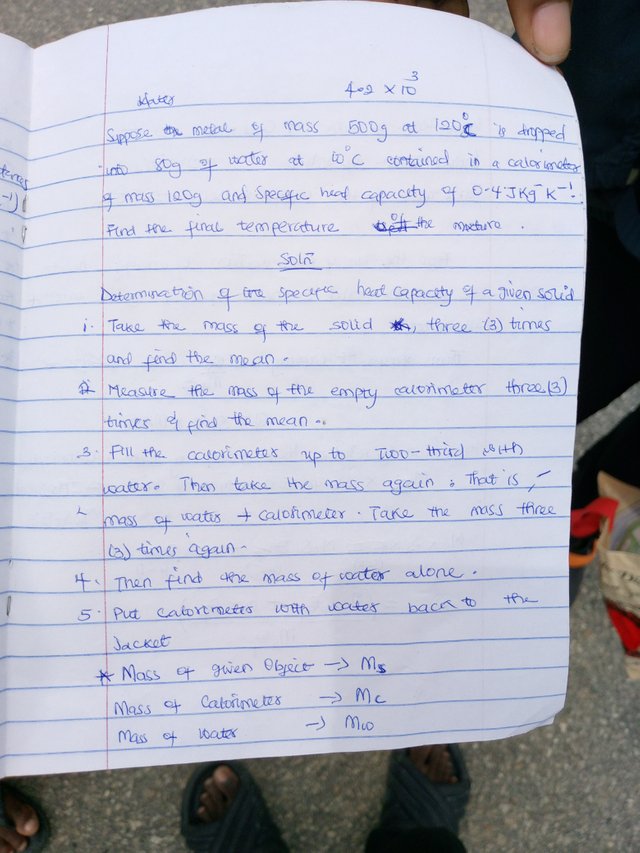 Water 4.2 × 10³
Suppose the metal of mass 500g at 120°C is dropped
into 80g of water at 10°C contained in a calorimeter
of mass 120g and specific heat capacity of 0.4 JKg⁻K⁻¹.
Find the final temperature of the mixture.
Soln
Determination of the specific heat capacity of a given solid
i. Take the mass of the solid, three (3) times
and find the mean.
2. Measure the mass of the empty calorimeter three (3)
times & find the mean..
3. Fill the calorimeter up to Two-third with
water. Then take the mass again: That is,
mass of water + calorimeter. Take the mass three
(3) times again.
4. Then find the mass of water alone.
5. Put calorimeter with water back to the
Jacket
* Mass of given Object → Ms
Mass of Calorimeter → Mc
Mass of water → Mw